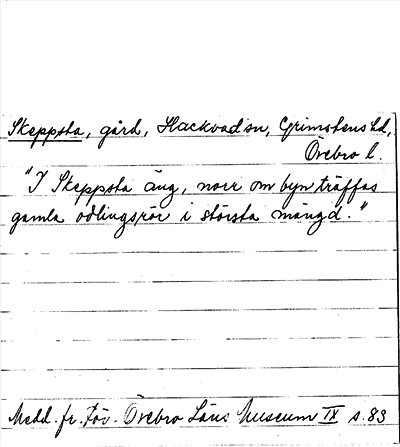 Skeppsta, gård, Hackvad sn, Grimstens hd,
Örebro l.
"I Skeppsta äng, norr om byn träffas
gamla odlingsrör i största mängd."
Medd. fr. För. Örebro Läns Museum IX s. 83